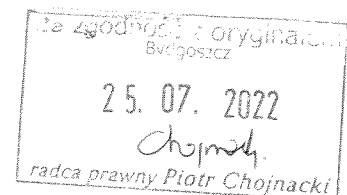 Za zgodność z oryginałem
Bydgoszcz
25. 07. 2022
Chojnacki
radca prawny Piotr Chojnacki